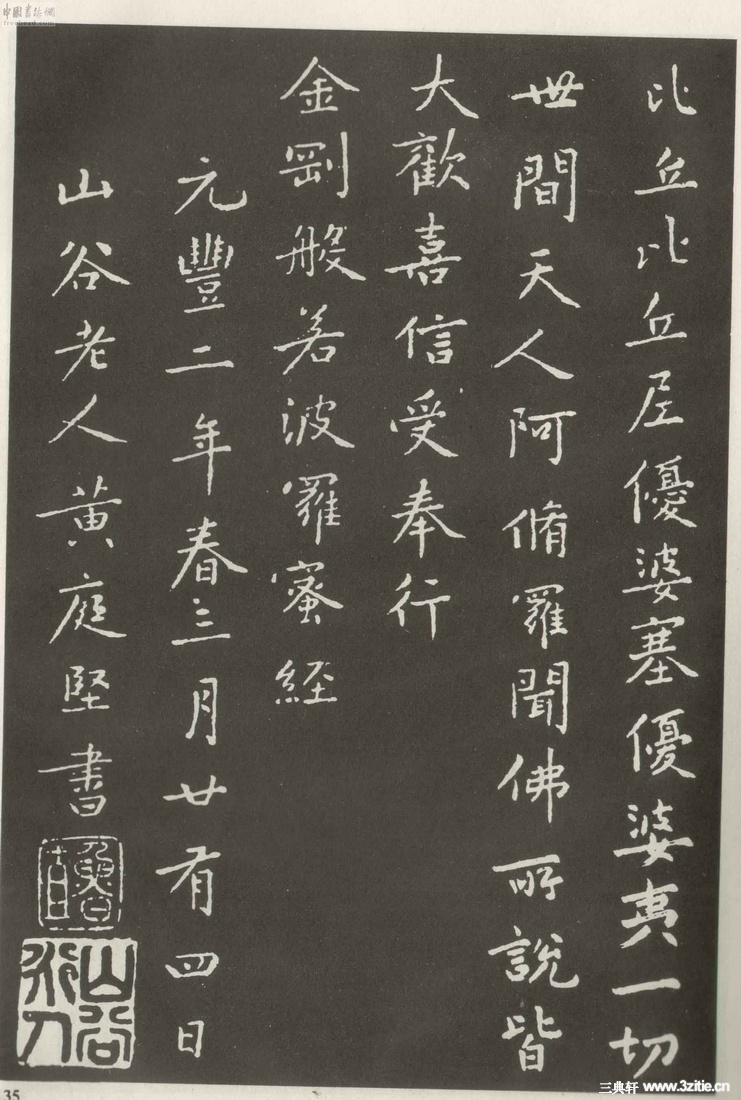 比丘比丘尼優婆塞優婆夷一切
世間天人阿脩羅聞佛所說皆
大歡喜信受奉行
金剛般若波羅蜜經
元豐二年春三月廿有四日
山谷老人黃庭堅書
35
中國書法網
三典轩 www.3zitie.cn